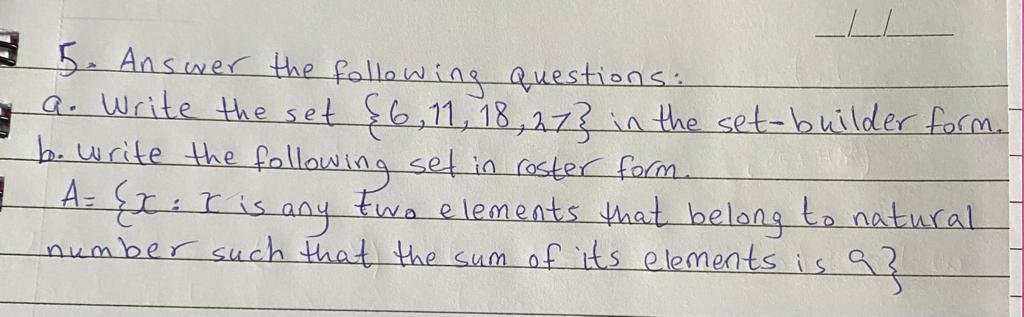 5. Answer the following questions:
a. Write the set {6, 11, 18, 27} in the set-builder form.
b. Write the following set in roster form.
A = {x : x is any two elements that belong to natural
number such that the sum of its elements is 9}